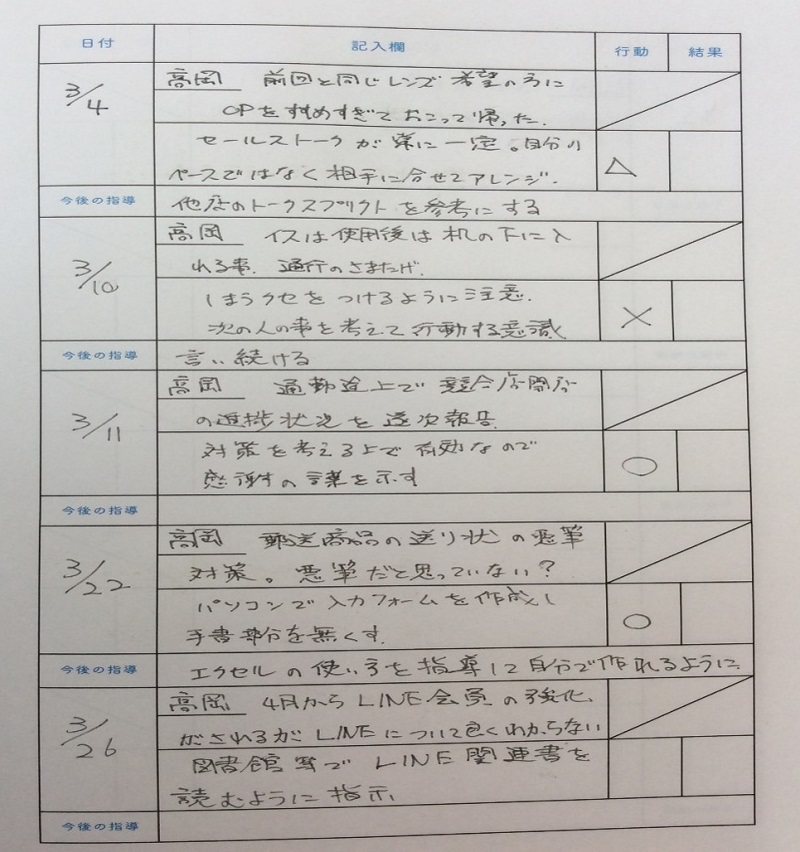 日付 記入欄 行動 結果
3/4
高岡 前回と同じレンズ希望の方に
OPをすすめすぎておこって帰った.
セールストークが常に一定。自分の
ペースではなく相手に合せてアレンジ.
△
今後の指導 他店のトークスプリクトを参考にする
3/10
高岡 イスは使用後は机の下に入
れる事. 通行のさまたげ.
しまうクセをつけるように注意.
次の人の事を考えて行動する意識
×
今後の指導 言い続ける
3/11
高岡 通勤途上で競合店開店
の進捗状況を逐次報告.
対策を考える上で有効なので
感謝の言葉を示す
○
今後の指導
3/22
高岡 郵送商品の送り状の悪筆
対策。悪筆だと思っていない?
パソコンで入力フォームを作成し
手書部分を無くす.
○
今後の指導 エクセルの使い方を指導して自分で作れるように.
3/26
高岡 4月からLINE会員の強化.
がされるがLINEについて良くわからない
図書館等でLINE関連書を
読むように指示.
今後の指導